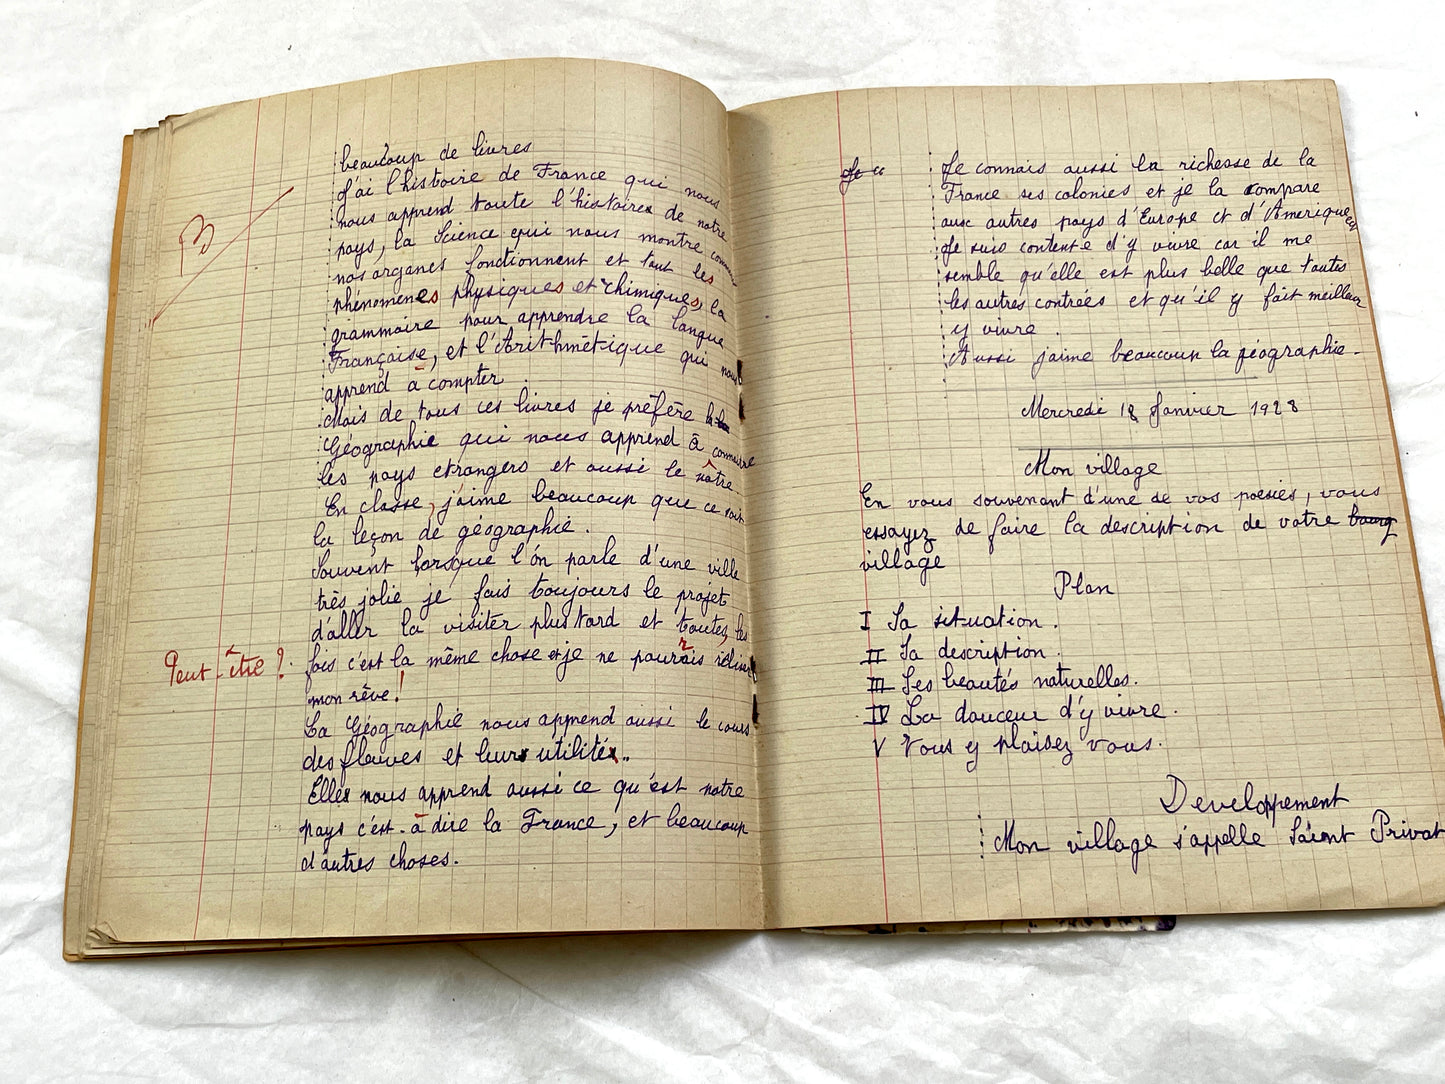 beaucoup de livres
J'ai l'histoire de France qui nous
nous apprend toute l'histoire de notre
pays, la Science qui nous montre comment
nos organes fonctionnent et tout les
phénomènes physiques et chimiques, la
grammaire pour apprendre la langue
Française, et l'Arithmétique qui nous
apprend à compter.
Mais de tous ces livres je préfère
Géographie qui nous apprend à connaître
les pays etrangers et aussi le nôtre.
En classe, j'aime beaucoup que ce soit
la leçon de géographie.
Souvent lorsque l'on parle d'une ville
très jolie je fais toujours le projet
d'aller la visiter plus tard et toutes les
Peut-être ? fois c'est la même chose et je ne pourrais réaliser
mon rêve !
La Géographie nous apprend aussi le cours
des fleuves et leurs utilités.
Elle nous apprend aussi ce qu'est notre
pays c'est-à dire la France, et beaucoup
d'autres choses.
B
Je c
Je connais aussi la richesse de la
France ses colonies et je la compare
aux autres pays d'Europe et d'Amerique
Je suis contente d'y vivre car il me
semble qu'elle est plus belle que toutes
les autres contrées et qu'il y fait meilleur
y vivre.
Aussi j'aime beaucoup la géographie.
Mercredi 18 Janvier 1928
Mon village
En vous souvenant d'une de vos poesies, vous
essayez de faire la description de votre bourg
village
Plan
I Sa situation.
II Sa description.
III Ses beautés naturelles.
IV La douceur d'y vivre.
V Vous y plaisez vous.
Developpement
Mon village s'appelle Saint Privat